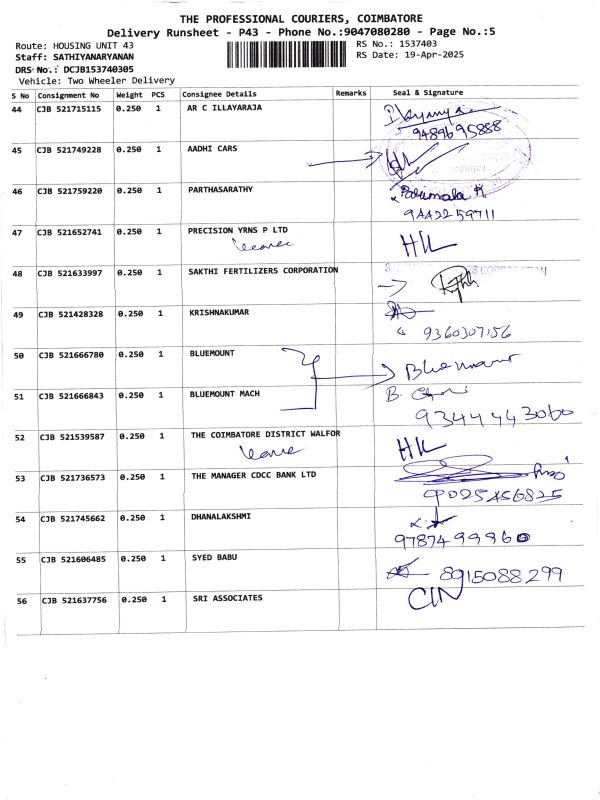 THE PROFESSIONAL COURIERS, COIMBATORE
Delivery Runsheet - P43 - Phone No.:9047080280 - Page No.:5
Route: HOUSING UNIT 43
RS No.: 1537403
Staff: SATHIYANARYANAN
RS Date: 19-Apr-2025
DRS No.: DCJB153740305
Vehicle: Two Wheeler Delivery
S No Consignment No Weight PCS Consignee Details Remarks Seal & Signature
44 CJB 521715115 0.250 1 AR C ILLAYARAJA
9489695888
45 CJB 521749228 0.250 1 AADHI CARS
46 CJB 521759220 0.250 1 PARTHASARATHY
9442259711
47 CJB 521652741 0.250 1 PRECISION YRNS P LTD
48 CJB 521633997 0.250 1 SAKTHI FERTILIZERS CORPORATION
49 CJB 521428328 0.250 1 KRISHNAKUMAR
9360307156
50 CJB 521666780 0.250 1 BLUEMOUNT
Bluemount
51 CJB 521666843 0.250 1 BLUEMOUNT MACH
9344443060
52 CJB 521539587 0.250 1 THE COIMBATORE DISTRICT WALFOR
leave
53 CJB 521736573 0.250 1 THE MANAGER CDCC BANK LTD
9025456825
54 CJB 521745662 0.250 1 DHANALAKSHMI
9787499960
55 CJB 521606485 0.250 1 SYED BABU
8915088299
56 CJB 521637756 0.250 1 SRI ASSOCIATES